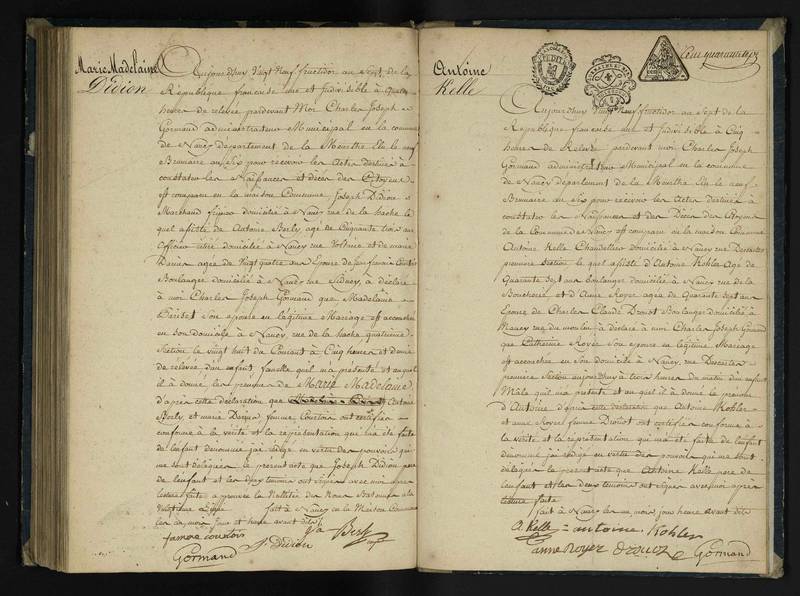 Marie Madelaine
Didion
Aujourdhuy Vingt Neuf fructidor an Sept de la
République francaise une et Indivisible à quatre
heures de relevée pardevant Moi Charles Joseph
Gormand administrateur Municipal en la commune
de Nancy département de la Meurthe Elu le neuf
Brumaire an Six pour recevoir les Actes destinés à
constater les Naissances et décès des Citoyens
est comparu en la maison Commune Joseph Didion
Marchand domicilié à Nancy rue de la hache le
quel assisté de Antoine agé de Cinquante trois ans
Officier retiré domicilié à Nancy rue Voltaire et de marie
agée de Vingt quatre ans Epouse de francois Courtois
Boulanger domicilié à Nancy rue Sidney, a déclaré
à moi Charles Joseph Gormand que Madelaine
son epouse en légitime Mariage est accouchée
en son domicile à Nancy rue de la hache quatrième
Section le vingt huit du Courant à Cinq heures et demie
de relevée d'un enfant femelle quil m'a présenté et auquel
il a donné les prenoms de Marie Madelaine,
d'après cette déclaration que Antoine
et marie femme Courtois ont certifiée
conforme à la vérité et la représentation qui m'a été faite
de lenfant denommé jai rédigé en vertu des pouvoirs qui
me sont délégués le présent acte que Joseph Didion pere
de lenfant et les deux temoins ont signés avec moi après
lecture faite
fait à Nancy en la Maison Commune
les an, mois jour et heure avant dits
famme courtois
J. Didion
Gormand
Antoine
Kelle
Aujourdhuy Vingt Neuf fructidor an Sept de la
République francaise une et indivisible à Cinq
heures de Relevée pardevant moi Charles Joseph
Gormand administrateur Municipal en la commune
de Nancy Département de la Meurthe Elu le neuf
Brumaire an Six pour recevoir les Actes destinés à
constater les Naissances et des Décès des Citoyens
de la Commune de Nancy est comparu en la maison Commune
Antoine Kelle Chandellier domicilié à Nancy rue Descartes
première Section le quel assisté d'Antoine Kohler Agé de
Quarante Sept ans boulanger domicilié à Nancy rue de la
Boucherie et d'Anne Royer agée de Quarante Sept ans
Epouse de Charles Claude Drouot Boulanger domicilié à
Nancy rue du moulin a déclaré à moi Charles Joseph Gormand
que Catherine Royée Son epouse en légitime Mariage
est accouchée en son domicile à Nancy, rue Descartes
première Section aujourdhuy à trois heures du matin d'un enfant
Male quil m'a présenté et auquel il a donné le prenom
d'Antoine d'après cette déclaration que Antoine Kohler
et anne Royer femme Drouot ont certifiée conforme à
la vérité et la représentation qui m'a été faite de lenfant
denommé jai rédigé en vertu des pouvoirs qui me sont
délégués le présent acte que Antoine Kelle pere de
lenfant et les deux temoins ont signés avec moi après
lecture faite
fait à Nancy les an, mois, jour heure avant dits
A Kelle = antoine Kohler
anne royer drouot Gormand